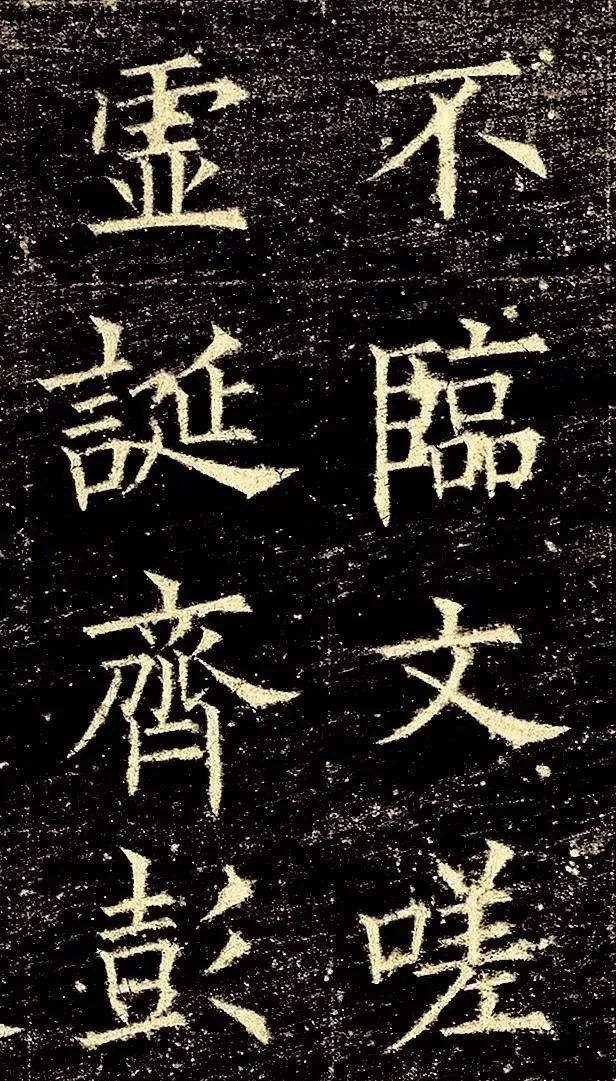 不臨文嗟
虛誕齊彭